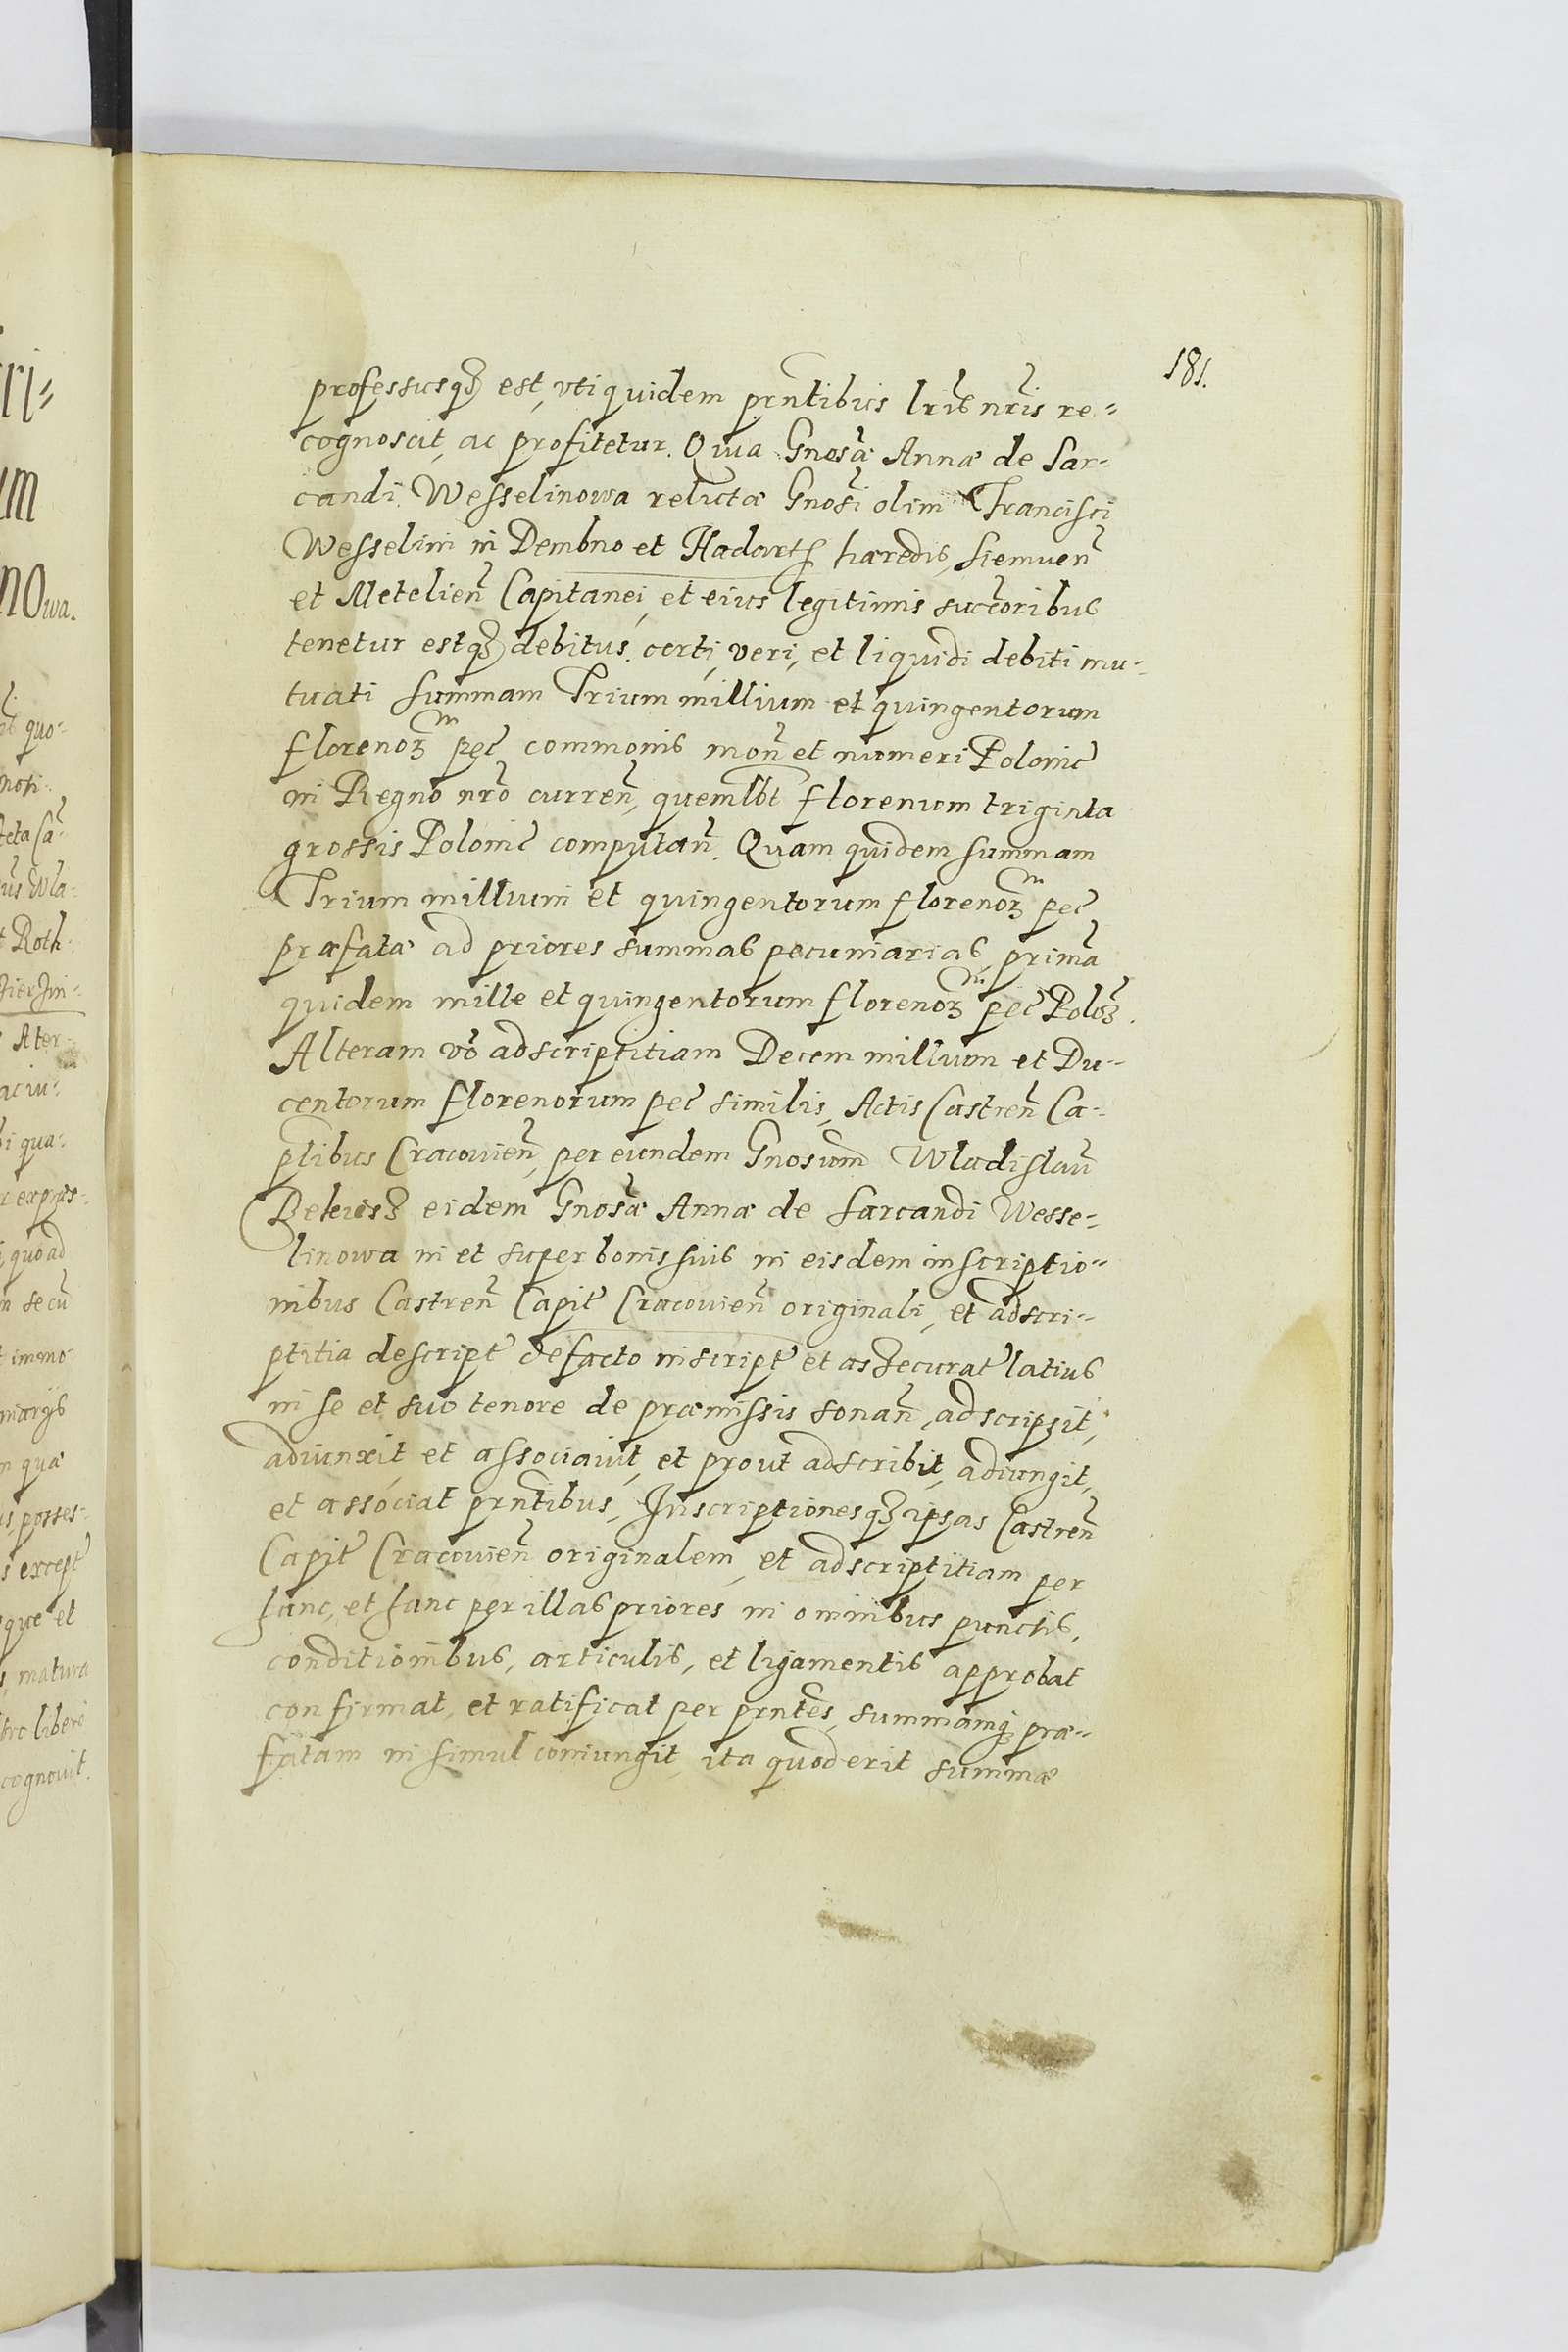 181.
professusqȝ est, vti quidem prñtibus lrĩs nrĩs re-
cognoscit, ac profitetur. Quia Gnosæ Annæ de Sar-
candi Wesselinowa relictæ Gnosi olim Francisci
Wesselini in Dembno et Hadarts hæredis, Siemueñ
et Metelieñ Capitanei, et eius legitimis succoribus
tenetur estqȝ debitus, certi, veri, et liquidi debiti mu-
tuati summam Trium millium et quingentorum
florenoȝm pec̃ commonis moñ et numeri Polonic̃
in Regno nr̃o curreñ, quemlbt florenum triginta
grossis Polonic̃ computañ. Quam quidem summam
Trium millium et quingentorum florenoȝm pec̃
præfatã ad priores summas pecuniarias, primã
quidem mille et quingentorum florenoȝm pec̃ Poloȝ.
Alteram vo adscriptitiam Decem millium et Du-
centorum florenorum pec̃ similis, Actis Castreñ Ca-
plibus Cracouieñ, per eundem Gnosum Wladislaũ
Bekiesȝ eidem Gnosæ Annæ de Sarcandi Wesse-
linowa in et super bonis suis in eisdem inscriptio-
nibus Castreñ Capit̃ Cracouieñ originali, et adscri-
ptitia descript̃ de facto inscript̃ et assecurat̃ latius
in se et suo tenore de præmissis sonañ, adscripsit,
adiunxit et associauit, et prout adscribit, adiungit,
et associat prñtibus, Inscriptionesqȝ ipsas Castreñ
Capit̃ Cracouieñ originalem, et adscriptitiam per
hanc, et hanc per illas priores in omnibus punctis,
conditionibus, articulis, et ligamentis approbat
confirmat, et ratificat per prñtes, summamqȝ præ-
fatam in simul coniungit, ita quod erit summæ